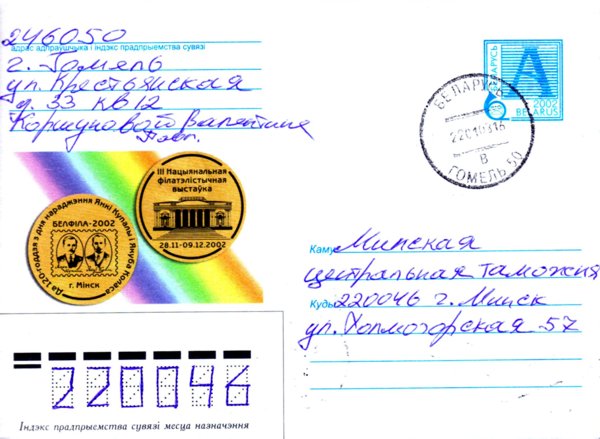 246050
адрас адпраўшчыка і індэкс прадпрыемства сувязі
г. Гомель
ул. Крестьянская
д. 33 кв 12
Коршуновой Валентине
БЕЛАРУСЬ
А
2002
BELARUS
БЕЛАРУСЬ
В
ГОМЕЛЬ 50
III Нацыянальная
філатэлістычная
выстаўка
28.11-09.12.2002
Да 120-годдзя з дня нараджэння Янкі Купалы і Якуба Коласа
БЕЛФІЛА-2002
г. Мінск
Каму Минская
центральная таможня
Куды 220046 г. Минск
ул. Холмогорская 57
220046
Індэкс прадпрыемства сувязі месца назначэння